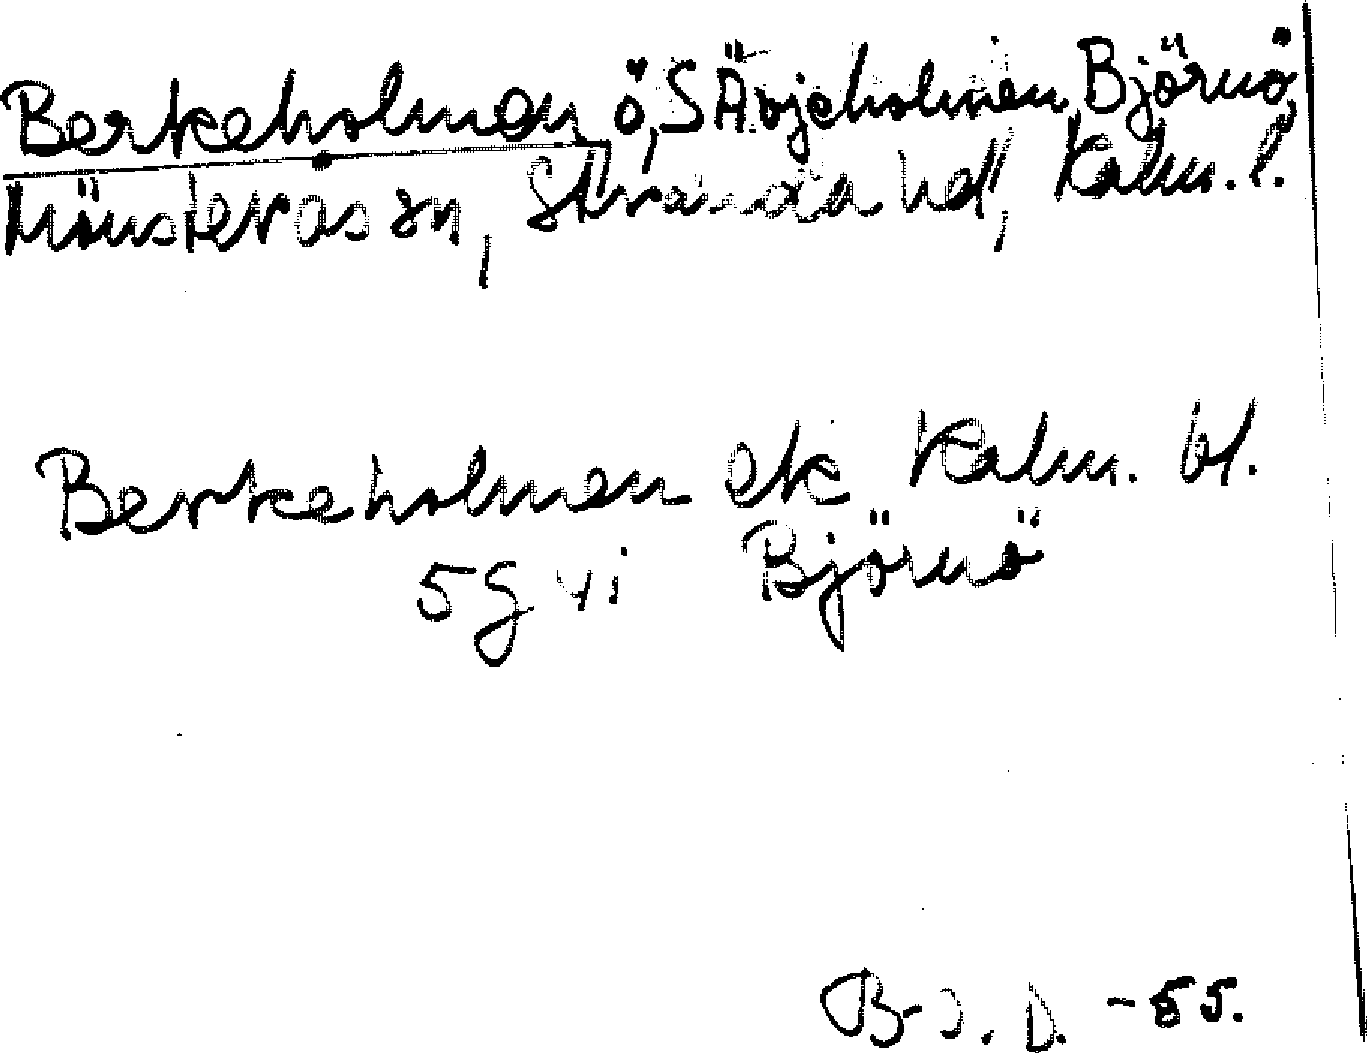 Berkeholmen ö, S Ävjeholmen, Björnö,
Mönsterås sn, Stranda hd, Kalm. l.
Berkeholmen ek Kalm. bl.
5g vi Björnö
B-J. D. -55.